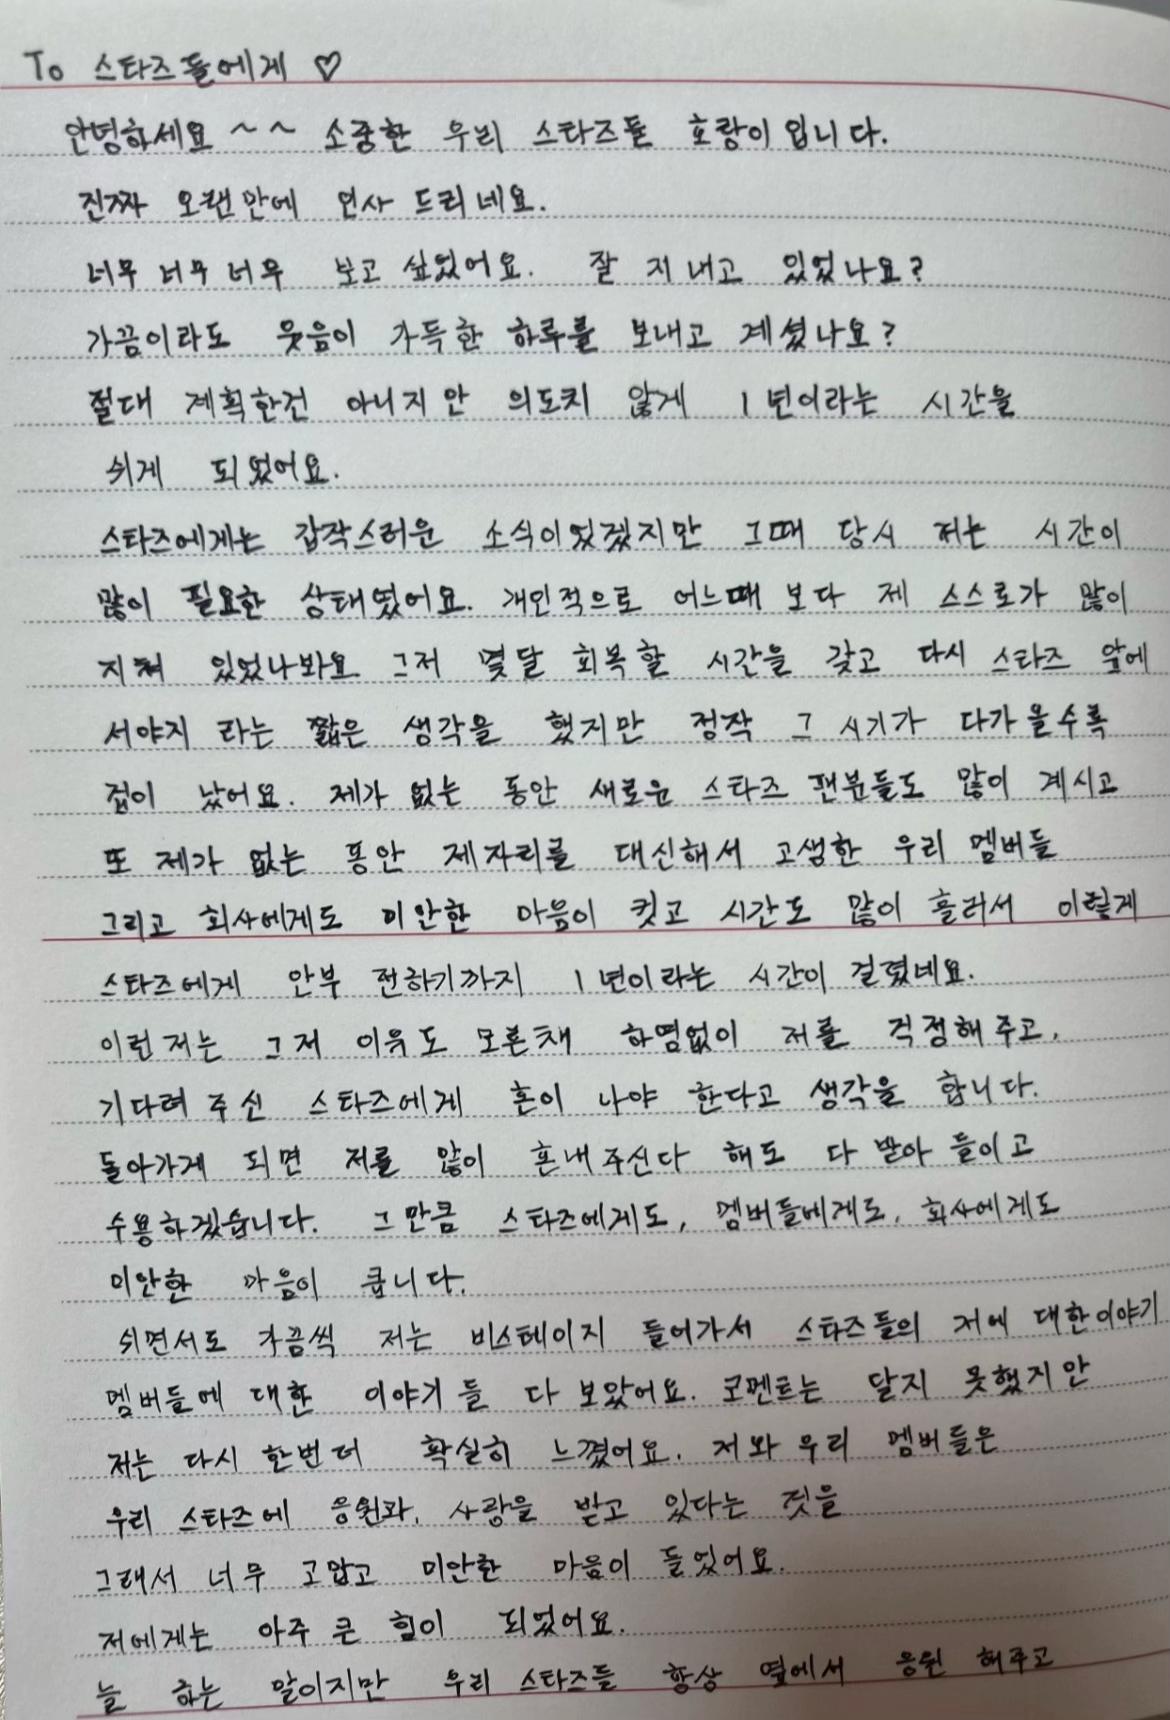 To 스타즈들에게 ♡
안녕하세요 ~~ 소중한 우리 스타즈들 호랑이입니다.
진짜 오랜만에 인사 드리네요.
너무 너무 너무 보고 싶었어요. 잘 지내고 있었나요?
가끔이라도 웃음이 가득한 하루를 보내고 계셨나요?
절대 계획한건 아니지만 의도치 않게 1년이라는 시간을
쉬게 되었어요.
스타즈에게는 갑작스러운 소식이었겠지만 그때 당시 저는 시간이
많이 필요한 상태였어요. 개인적으로 어느때 보다 제 스스로가 많이
지쳐 있었나봐요 그저 몇달 회복할 시간을 갖고 다시 스타즈 앞에
서야지 라는 짧은 생각을 했지만 정작 그 시기가 다가올수록
겁이 났어요. 제가 없는 동안 새로운 스타즈 팬분들도 많이 계시고
또 제가 없는 동안 제자리를 대신해서 고생한 우리 멤버들
그리고 회사에게도 미안한 마음이 컷고 시간도 많이 흘러서 이렇게
스타즈에게 안부 전하기까지 1년이라는 시간이 걸렸네요.
이런 저는 그저 이유도 모른채 하염없이 저를 걱정해주고,
기다려 주신 스타즈에게 혼이 나야 한다고 생각을 합니다.
돌아가게 되면 저를 많이 혼내주신다 해도 다 받아 들이고
수용하겠습니다. 그만큼 스타즈에게도, 멤버들에게도, 회사에게도
미안한 마음이 큽니다.
쉬면서도 가끔씩 저는 비스테이지 들어가서 스타즈들의 저에 대한이야기
멤버들에 대한 이야기들 다 보았어요. 코멘트는 달지 못했지만
저는 다시 한번 더 확실히 느꼈어요. 저와 우리 멤버들은
우리 스타즈에 응원과, 사랑을 받고 있다는 것을
그래서 너무 고맙고 미안한 마음이 들었어요.
저에게는 아주 큰 힘이 되었어요.
늘 하는 말이지만 우리 스타즈들 항상 옆에서 응원 해주고